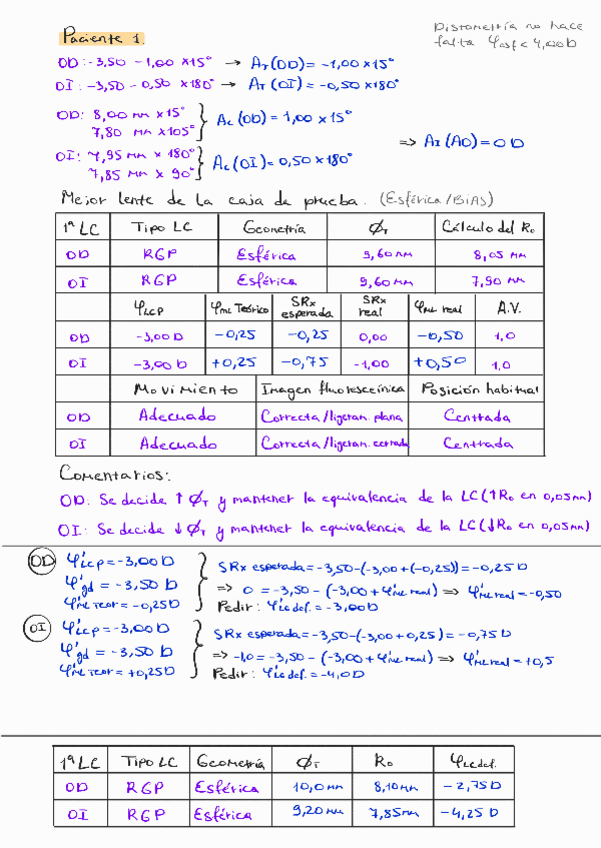 Paciente 1.
Distometría no hace
falta φesf < 4,00 D
OD: -3,50 -1,00 x15° → AT(OD) = -1,00 x15°
OI: -3,50 - 0,50 x180° → AT(OI) = -0,50 x180°
OD: 8,00 mm x15°
7,80 mm x105°
Ac(OD) = 1,00 x 15°
OI: 7,95 mm x 180°
7,85 mm x 90°
Ac(OI) = 0,50 x 180°
⇒ AI(AO) = 0 D
Mejor lente de la caja de prueba. (Esférica/BIAS)
1ª LC Tipo LC Geometría ØT Cálculo del R₀
OD RGP Esférica 9,60 mm 8,05 mm
OI RGP Esférica 9,60 mm 7,90 mm
φLCP φML Teórico SRx esperada SRx real φML real A.V.
OD -3,00 D -0,25 -0,25 0,00 -0,50 1,0
OI -3,00 D +0,25 -0,75 -1,00 +0,50 1,0
Movimiento Imagen fluoresceínica Posición habitual
OD Adecuado Correcta/ligeram. plana Centrada
OI Adecuado Correcta/ligeram. cerrada Centrada
Comentarios:
OD: Se decide ↑ ØT y mantener la equivalencia de la LC (↑R₀ en 0,05mm)
OI: Se decide ↓ ØT y mantener la equivalencia de la LC (↓R₀ en 0,05mm)
OD φ'LCP = -3,00 D
φ'gd = -3,50 D
φ'ML TEOR = -0,25D
SRx esperada = -3,50-(-3,00+(-0,25)) = -0,25 D
⇒ 0 = -3,50 - (-3,00 + φ'ML real) ⇒ φ'ML real = -0,50
Pedir: φ'LC def. = -3,00D
OI φ'LCP = -3,00D
φ'gd = -3,50 D
φ'ML TEOR = +0,25D
SRx esperada = -3,50-(-3,00+0,25) = -0,75 D
⇒ -1,0 = -3,50 - (-3,00 + φ'ML real) ⇒ φ'ML real = +0,5
Pedir: φ'LC def. = -4,0D
1ª LC Tipo LC Geometría ØT R₀ φLC def.
OD RGP Esférica 10,0 mm 8,10 mm -2,75 D
OI RGP Esférica 9,20 mm 7,85 mm -4,25 D